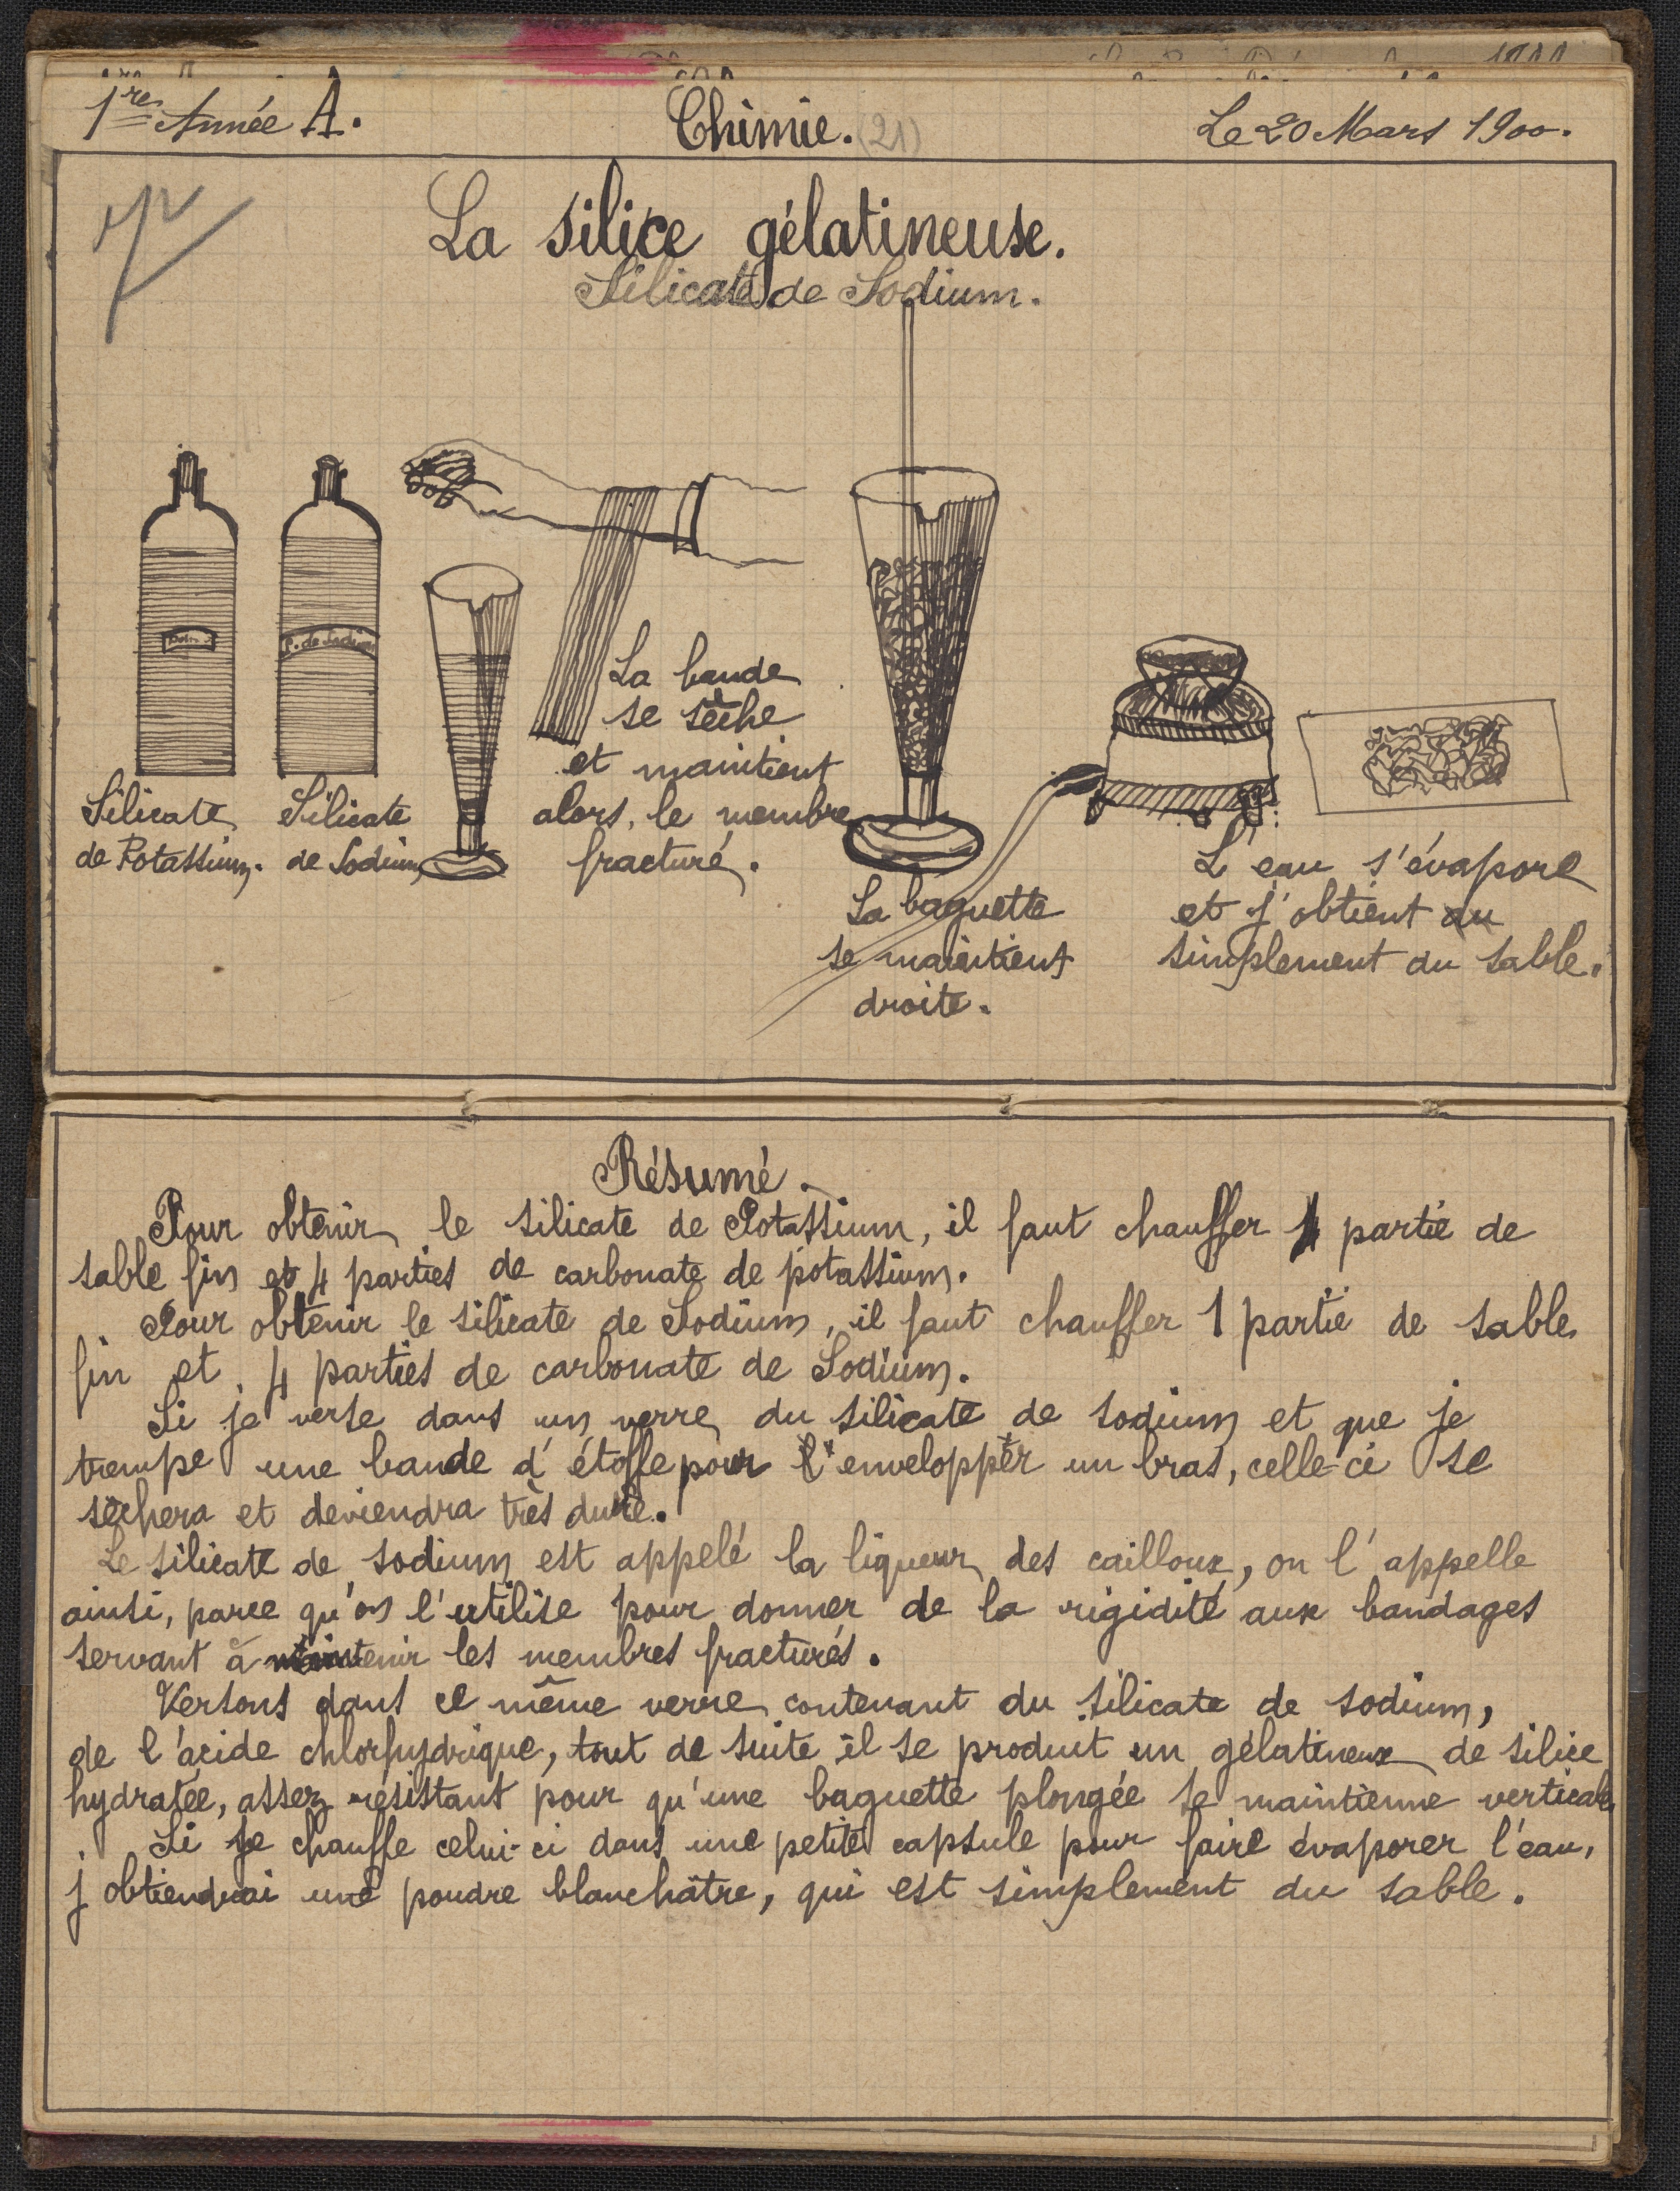 1re Année A.
Chimie. (21)
Le 20 Mars 1900.
La silice gélatineuse.
Silicate de Sodium.
S. de Sodium
Silicate
de Potassium.
Silicate
de Sodium
La bande
se sèche
et maintient
alors, le membre
fracturé.
La baguette
se maintient
droite.
L'eau s'évapore
et j'obtient du
simplement du sable.
Résumé.
Pour obtenir le silicate de Potassium, il faut chauffer 1 partie de
sable fin et 4 parties de carbonate de potassium.
Pour obtenir le silicate de Sodium, il faut chauffer 1 partie de sable
fin et 4 parties de carbonate de Sodium.
Si je verse dans un verre du silicate de sodium et que je
trempe une bande d'étoffe pour l'envelopper un bras, celle-ci se
sèchera et deviendra très dure.
Le silicate de sodium est appelé la liqueur des cailloux, on l'appelle
ainsi, parce qu'on l'utilise pour donner de la rigidité aux bandages
servant à maintenir les membres fracturés.
Versons dans ce même verre contenant du silicate de sodium,
de l'acide chlorhydrique, tout de suite il se produit un gélatineux de silice
hydratée, assez résistant pour qu'une baguette plongée se maintienne verticale
Si je chauffe celui-ci dans une petite capsule pour faire évaporer l'eau,
j'obtiendrai une poudre blanchâtre, qui est simplement du sable.